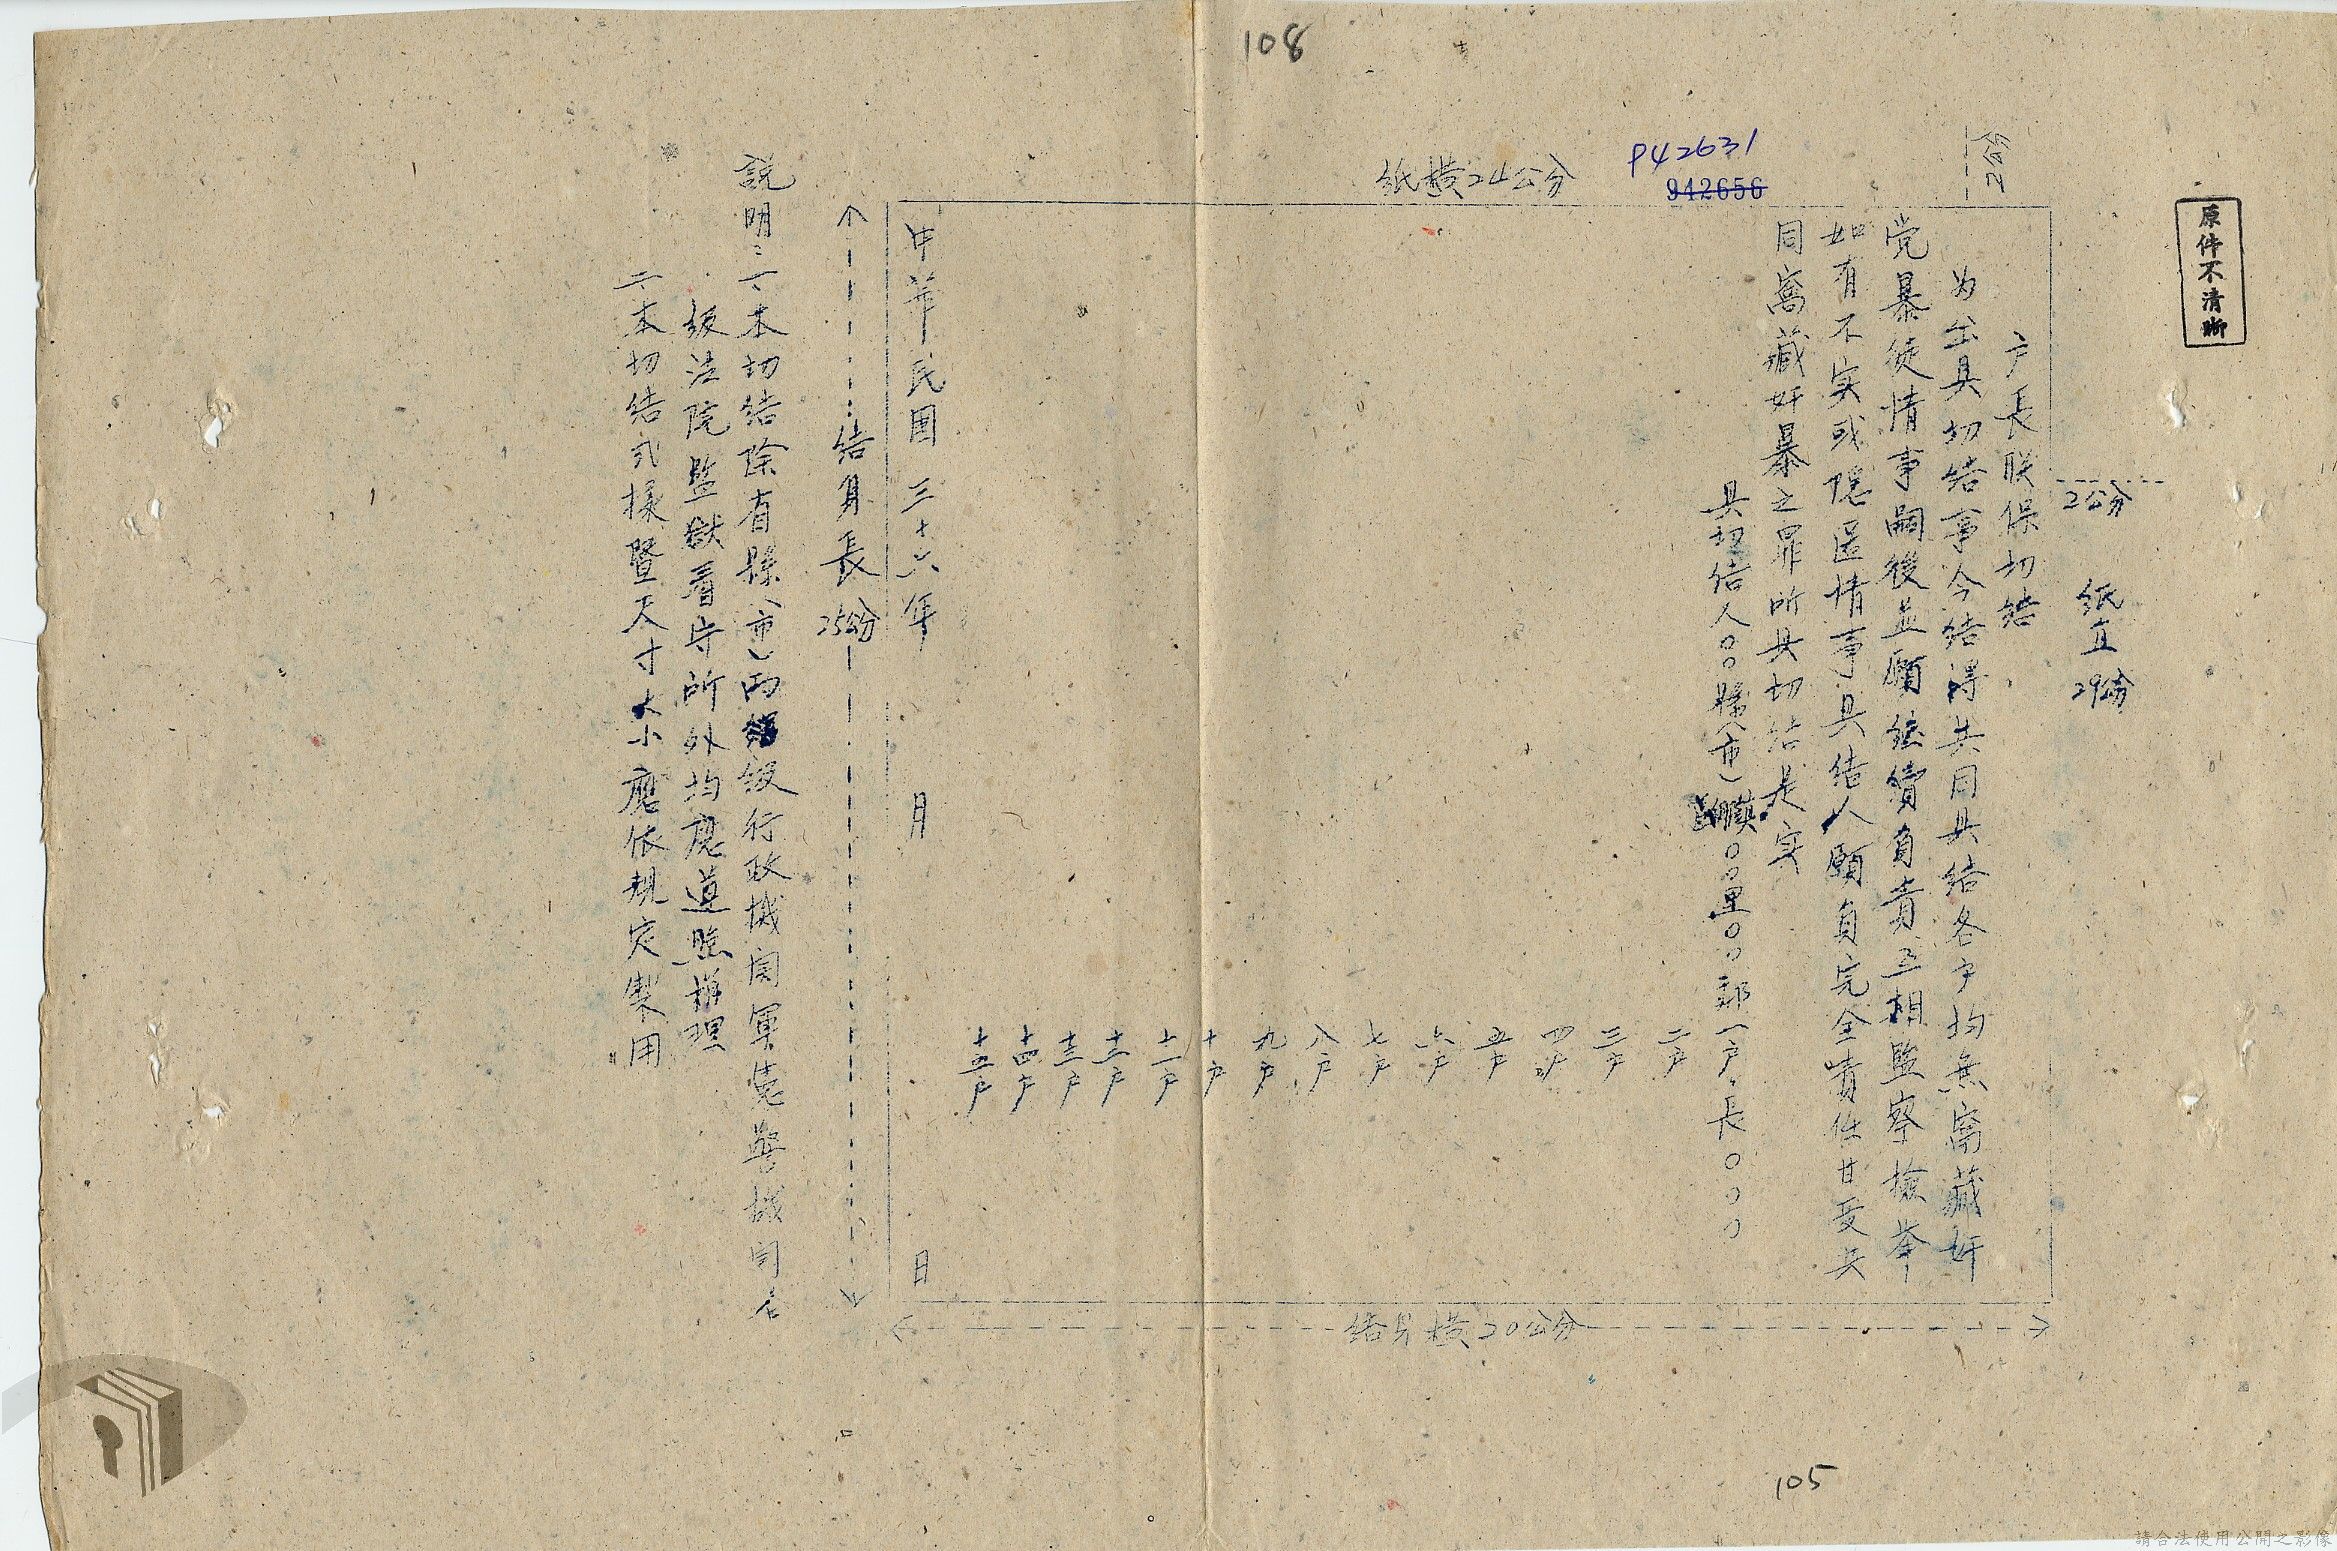 108
P42631
942656
原件不清晰
紙橫24公分
2公分
2公分
紙直29公分
戶長联保切結
为出具切结事今结得共同具结各户均無窩藏奸
党暴徒情事嗣後並願继續負責互相監察檢举
如有不实或隐匿情事具结人願負完全責任甘受共
同窩藏奸暴之罪所具切结是实
具切结人○○縣(市)鎮○○里○○鄰一户長○○○
二户
三户
四户
五户
六户
七户
八户
九户
十户
十一户
十二户
十三户
十四户
十五户
中華民國三十六年 月 日
结身長25公分
结身橫20公分
説明:一、本切结除省縣(市)両級行政機関軍憲警機関各
級法院監獄看守所外均應遵照辦理
二、本切结式様暨尺寸大小應依規定製用
105
請合法使用公開之影像